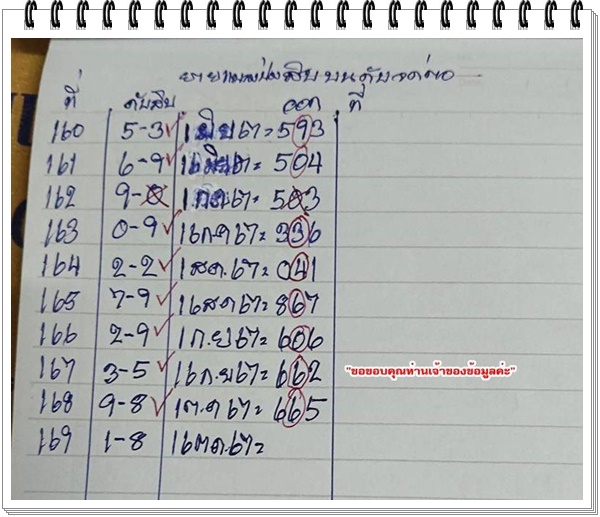 ที่ ดับสิบ ออก ที่
160 5-3 1 มิย 67= 593
161 6-9 16 มิย 67= 504
162 9-0 1 กค 67= 503
163 0-9 16 ก.ค 67= 336
164 2-2 1 สค.67= 041
165 7-9 16 สค 67= 867
166 2-9 1 ก.ย 67= 606
167 3-5 16 ก.ย 67= 662
"ขอขอบคุณท่านเจ้าของข้อมูลค่ะ"
168 9-8 1 ต.ค 67= 665
169 1-8 16 ตค.67=